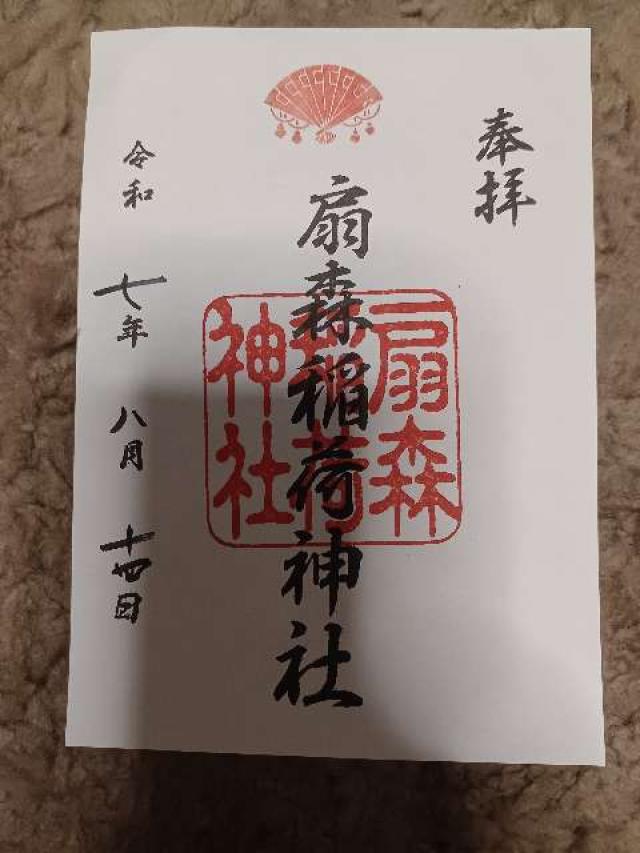 奉拝
扇森稲荷神社
扇森
稲荷
神社
令和 七年 八月 十四日